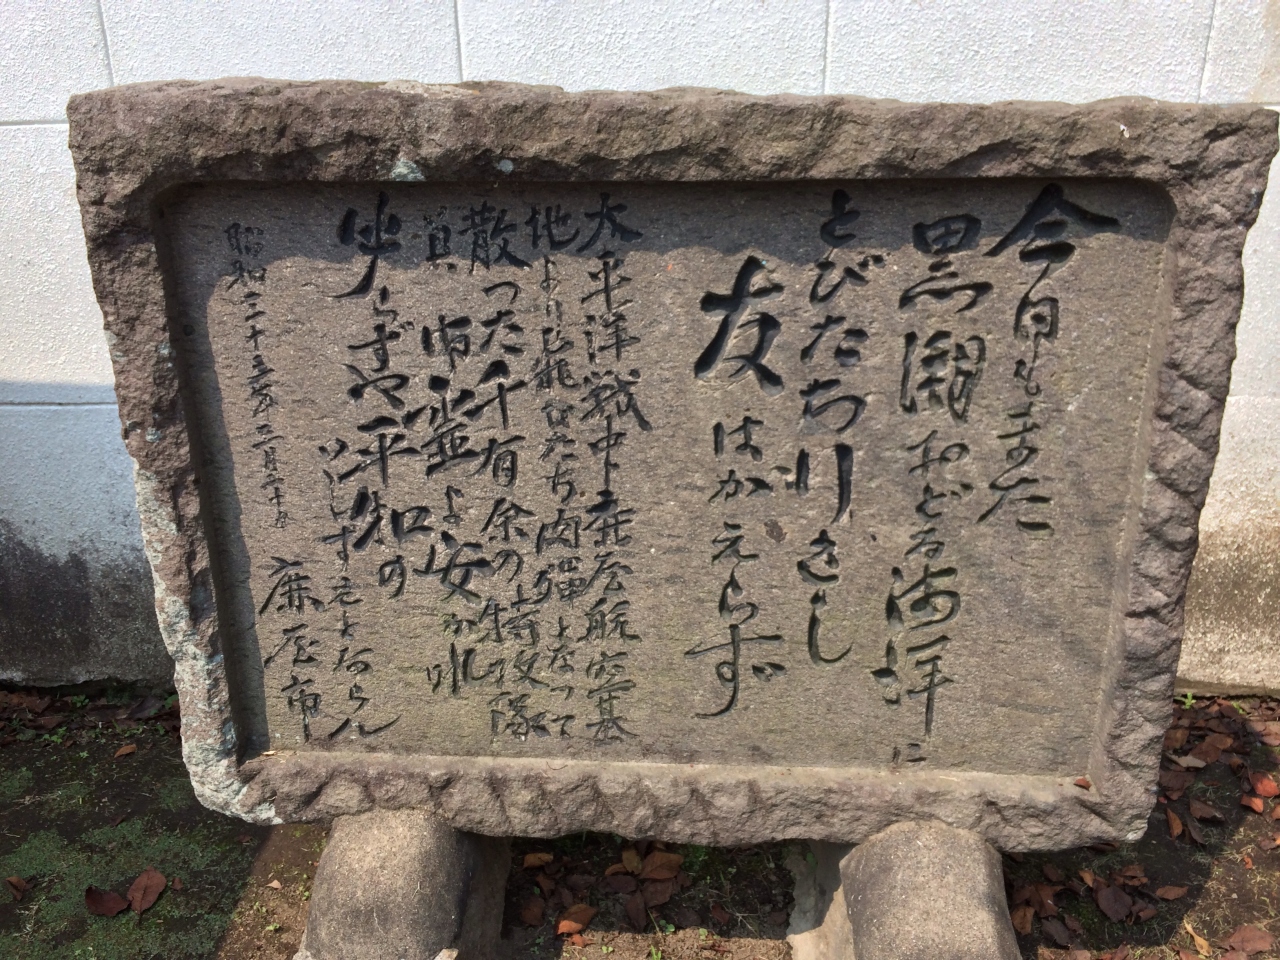 今日もまた
黒潮おどる海洋に
とびたち行きし
友はかえらず
太平洋戦中鹿屋航空基
地より飛びたち肉弾となって
散った千有余の特攻隊
員の御霊よ安かれ
歩らずや平和の
いしずえとならん
昭和三十三年三月二十日
鹿屋市